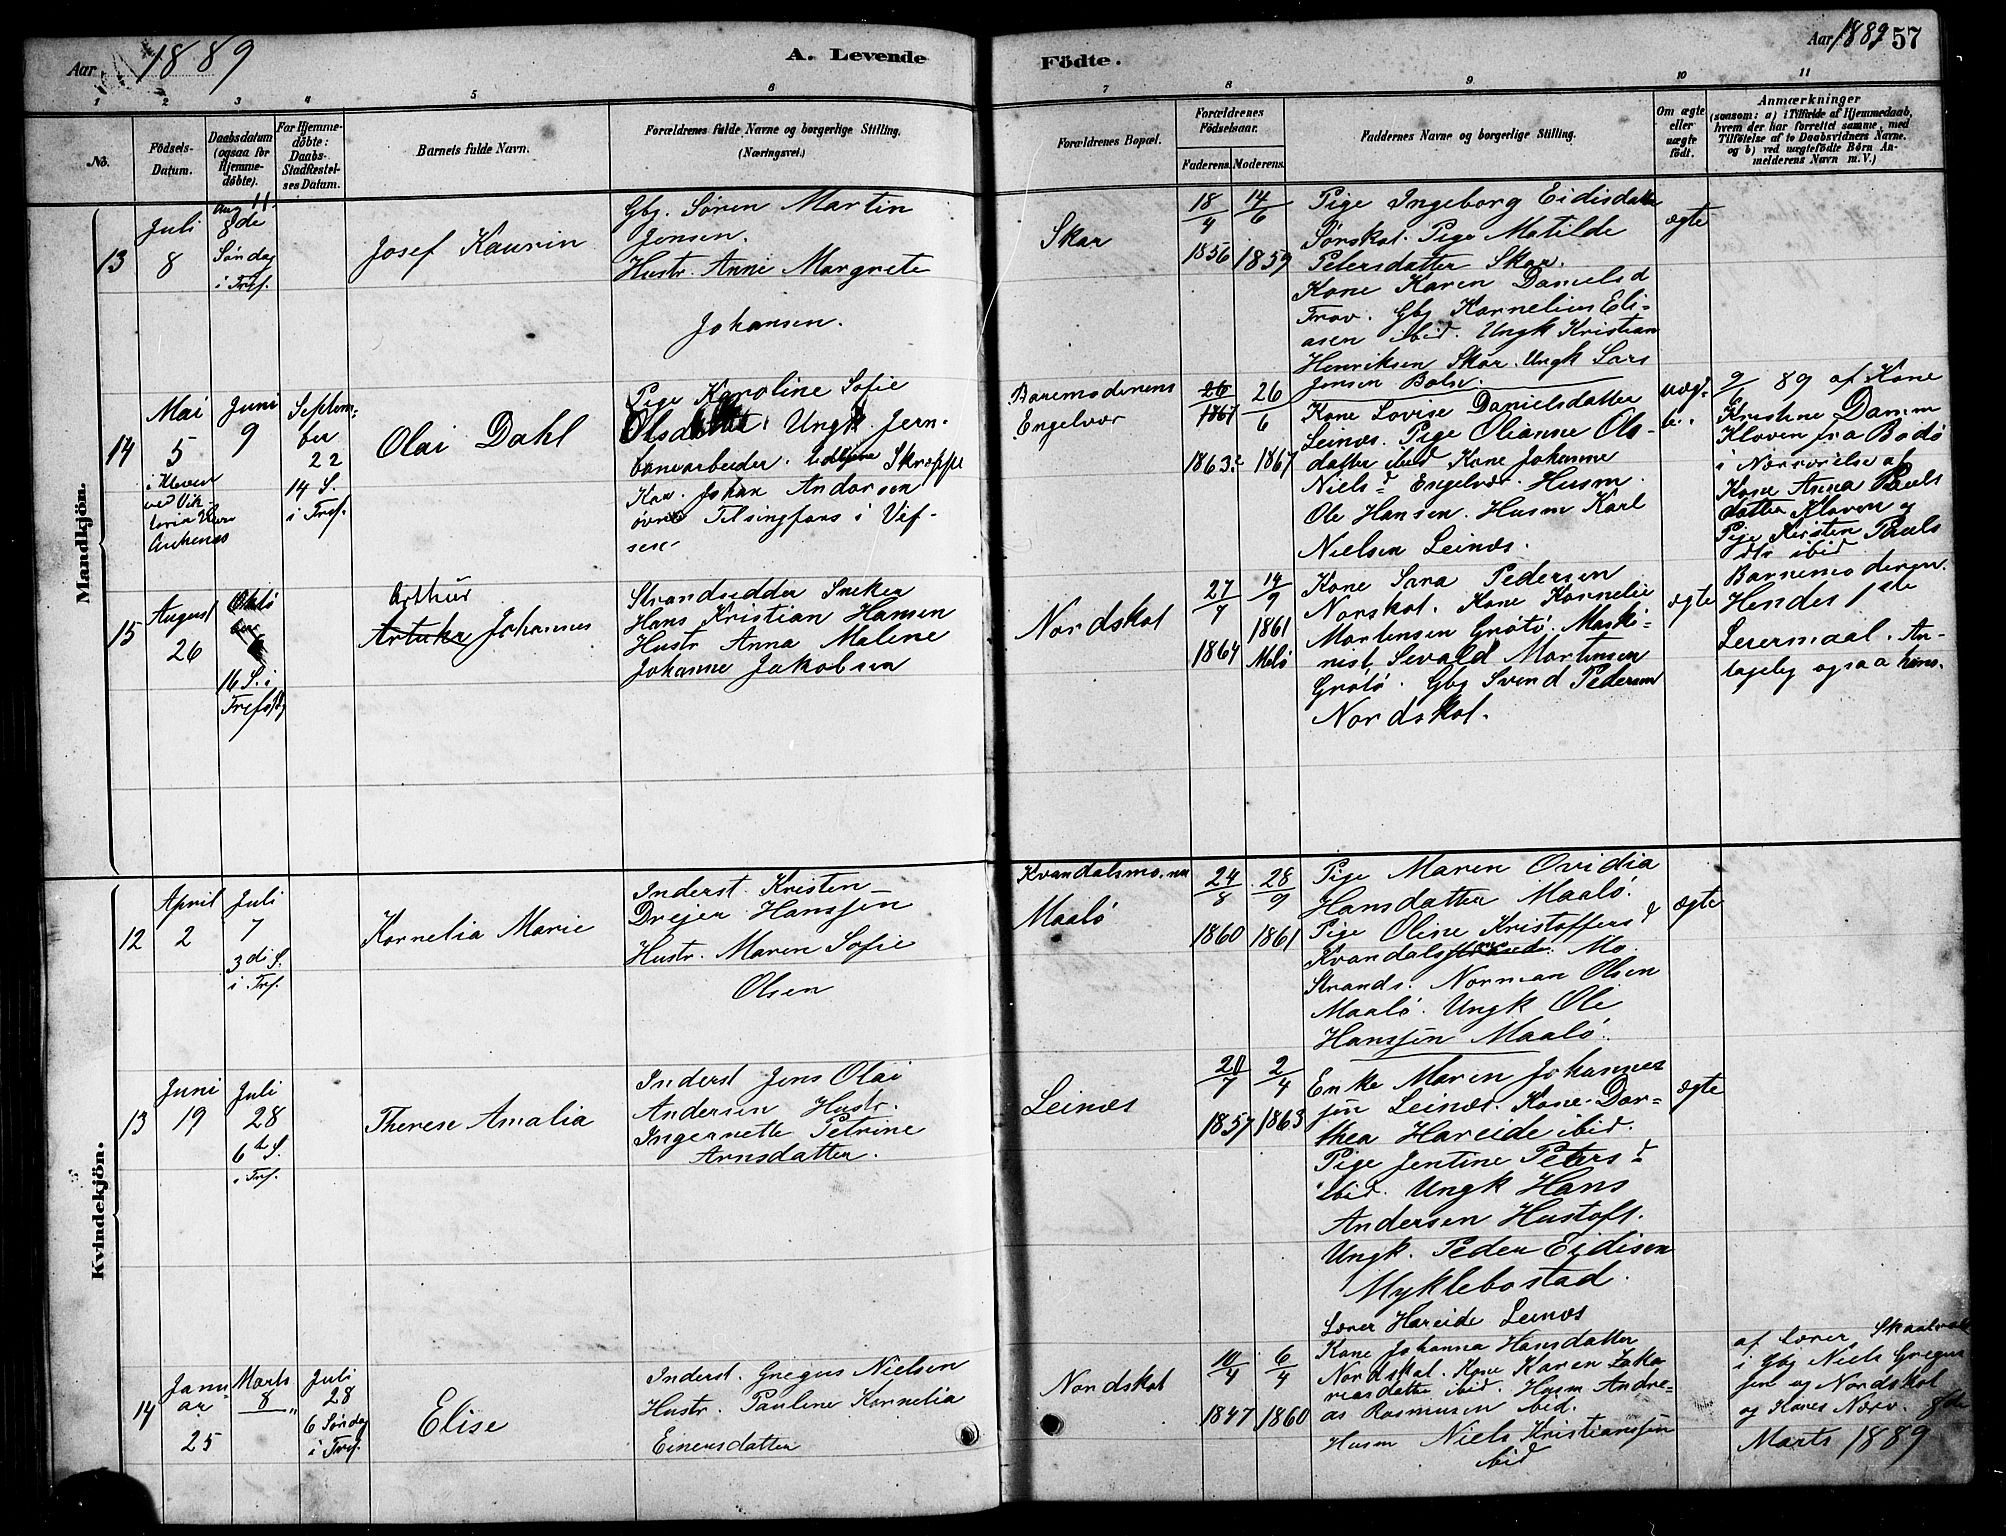 Aar 1889
A. Levende
Födte.
Aar 1889 57
1 2 3 4 5 6 7 8 9 10 11
No.
Födsels-
Datum.
Daabsdatum
(ogsaa for
Hjemme-
döbte).
For Hjemme-
döbte:
Daabs-
Stadfæstel-
ses Datum.
Barnets fulde Navn.
Forældrenes fulde Navne og borgerlige Stilling.
(Næringsvei.)
Forældrenes Bopæl.
Forældrenes
Födselsaar.
Faderens. Moderens.
Faddernes Navne og borgerlige Stilling.
Om ægte
eller
uægte
födt.
Anmærkninger
(saasom: a) i Tilfælde af Hjemmedaab,
hvem der har forrettet samme, med
Tilföielse af to Daabsvidners Navne,
og b) ved uægtefödte Börn An-
melderens Navn m. V.)
Mandkjön.
13
Juli
8
Aug 11.
8de
Søndag
i Tref.
Josef Kaurin
Gbr. Søren Martin
Jensen.
Hustr. Anne Margrete
Johansen.
Skar
18/4
1856
14/6
1859
Pige Ingeborg Eidisdatter
Sørskot. Pige Matilde
Petersdatter Skar.
Kone Karen Daniels d
Trav. Gbr Kornelius Eli-
asen ibid. Ungk Kristian
Henriksen Skar. Ungk Lars
Jensen Bolsv.
ægte
14
Mai
5
i Kloven
ved Vik-
toria Havn
Ankenes
Juni
9
Septem-
ber
22
14 S.
i Tref.
Olai Dahl
Pige Karoline Sofie
Olsdatter. Ungk. Jern-
banearbeider.
Johan Andersen
øvre Tilsingfors i Vef-
sen
Barnemoderens
Engelvær
26
1867
1863?
26/6
1867
Kone Lovise Danielsdatter
Leinæs. Pige Olianna Ols-
datter ibid Kone Johanne
Niels d Engelvær. Husm.
Ole Hansen. Husm Karl
Nielsen Leinæs.
uægt-
te.
9/6 89 af Kone
Kristine Damm
Kloven fra Bodø
i Nærværelse af
Kone Anna Pauls
datter Kloven og
Pige Kirsten Pauls
dtr ibid
Barnemoderen.
Hendes 1ste
Leiermaal. An-
tagelig ogsaa hans.
15
August
26
Okto
ber
6
16 S. i
Tref.
Arthur
Artuka Johannes
Strandsidder Snekker
Hans Kristian Hansen
Hustr Anna Malene
Johanne Jakobsen
Nordskot
27/7
1864
14/9
1861
Melø
Kone Sara Pedersen
Norskot. Kone Kornelie
Mortensen Grøtø. Maski-
nist Sevald Mortensen
Grøtø. Gbr Svend Pedersen
Nordskot.
ægte
Kvindekjön.
12
April
2
Juli
7
3die S.
i Tref.
Kornelia Marie
Inderst. Kristen
Drejer Hanssen
Hustr. Maren Sofie
Olsen
Kvandalsmo. nu
Maalø
24/8
1860
28/9
1861
Pige Maren Ovidia
Hansdatter Maalø.
Pige Oline Kristoffers d
Kvandalsstrand. Mo.
Strands. Norman Olsen
Maalø. Ungk Ole
Hanssen Maalø.
ægte
13
Juni
19
Juli
28
6te S.
i Tref.
Therese Amalia
Inderst Jens Olai
Andersen Hustr.
Ingernette Petrine
Arnsdatter.
Leinæs
20/7
1857
2/4
1863
Enke Maren Johannes
sen Leinæs. Kone Dor-
thea Hareide ibid.
Pige Jentine Peters d
ibid. Ungk Hans
Andersen Hustoft.
Ungk. Peder Eidisen
Myklebostad.
Lærer Hareide Leinæs
ægte
14
Janu
ar
25
Marts
8
Juli
28
6 Søndag
i Tref.
Elise
Inderst. Gregus Nielsen
Hustr. Pauline Kornelia
Einersdatter
Nordskot
10/4
1847
6/4
1860
Kone Johanna Hansdatter
Nordskot. Kone Karen Zaka-
riasdatter ibid. Husm Andre-
as Rasmusen ibid.
Husm Niels Kristianssen
ibid
af Lærer Skaalvold
i Gbr Niels Gregus
sen og Nordskot
og Kones Nærv. 8de
Marts 1889